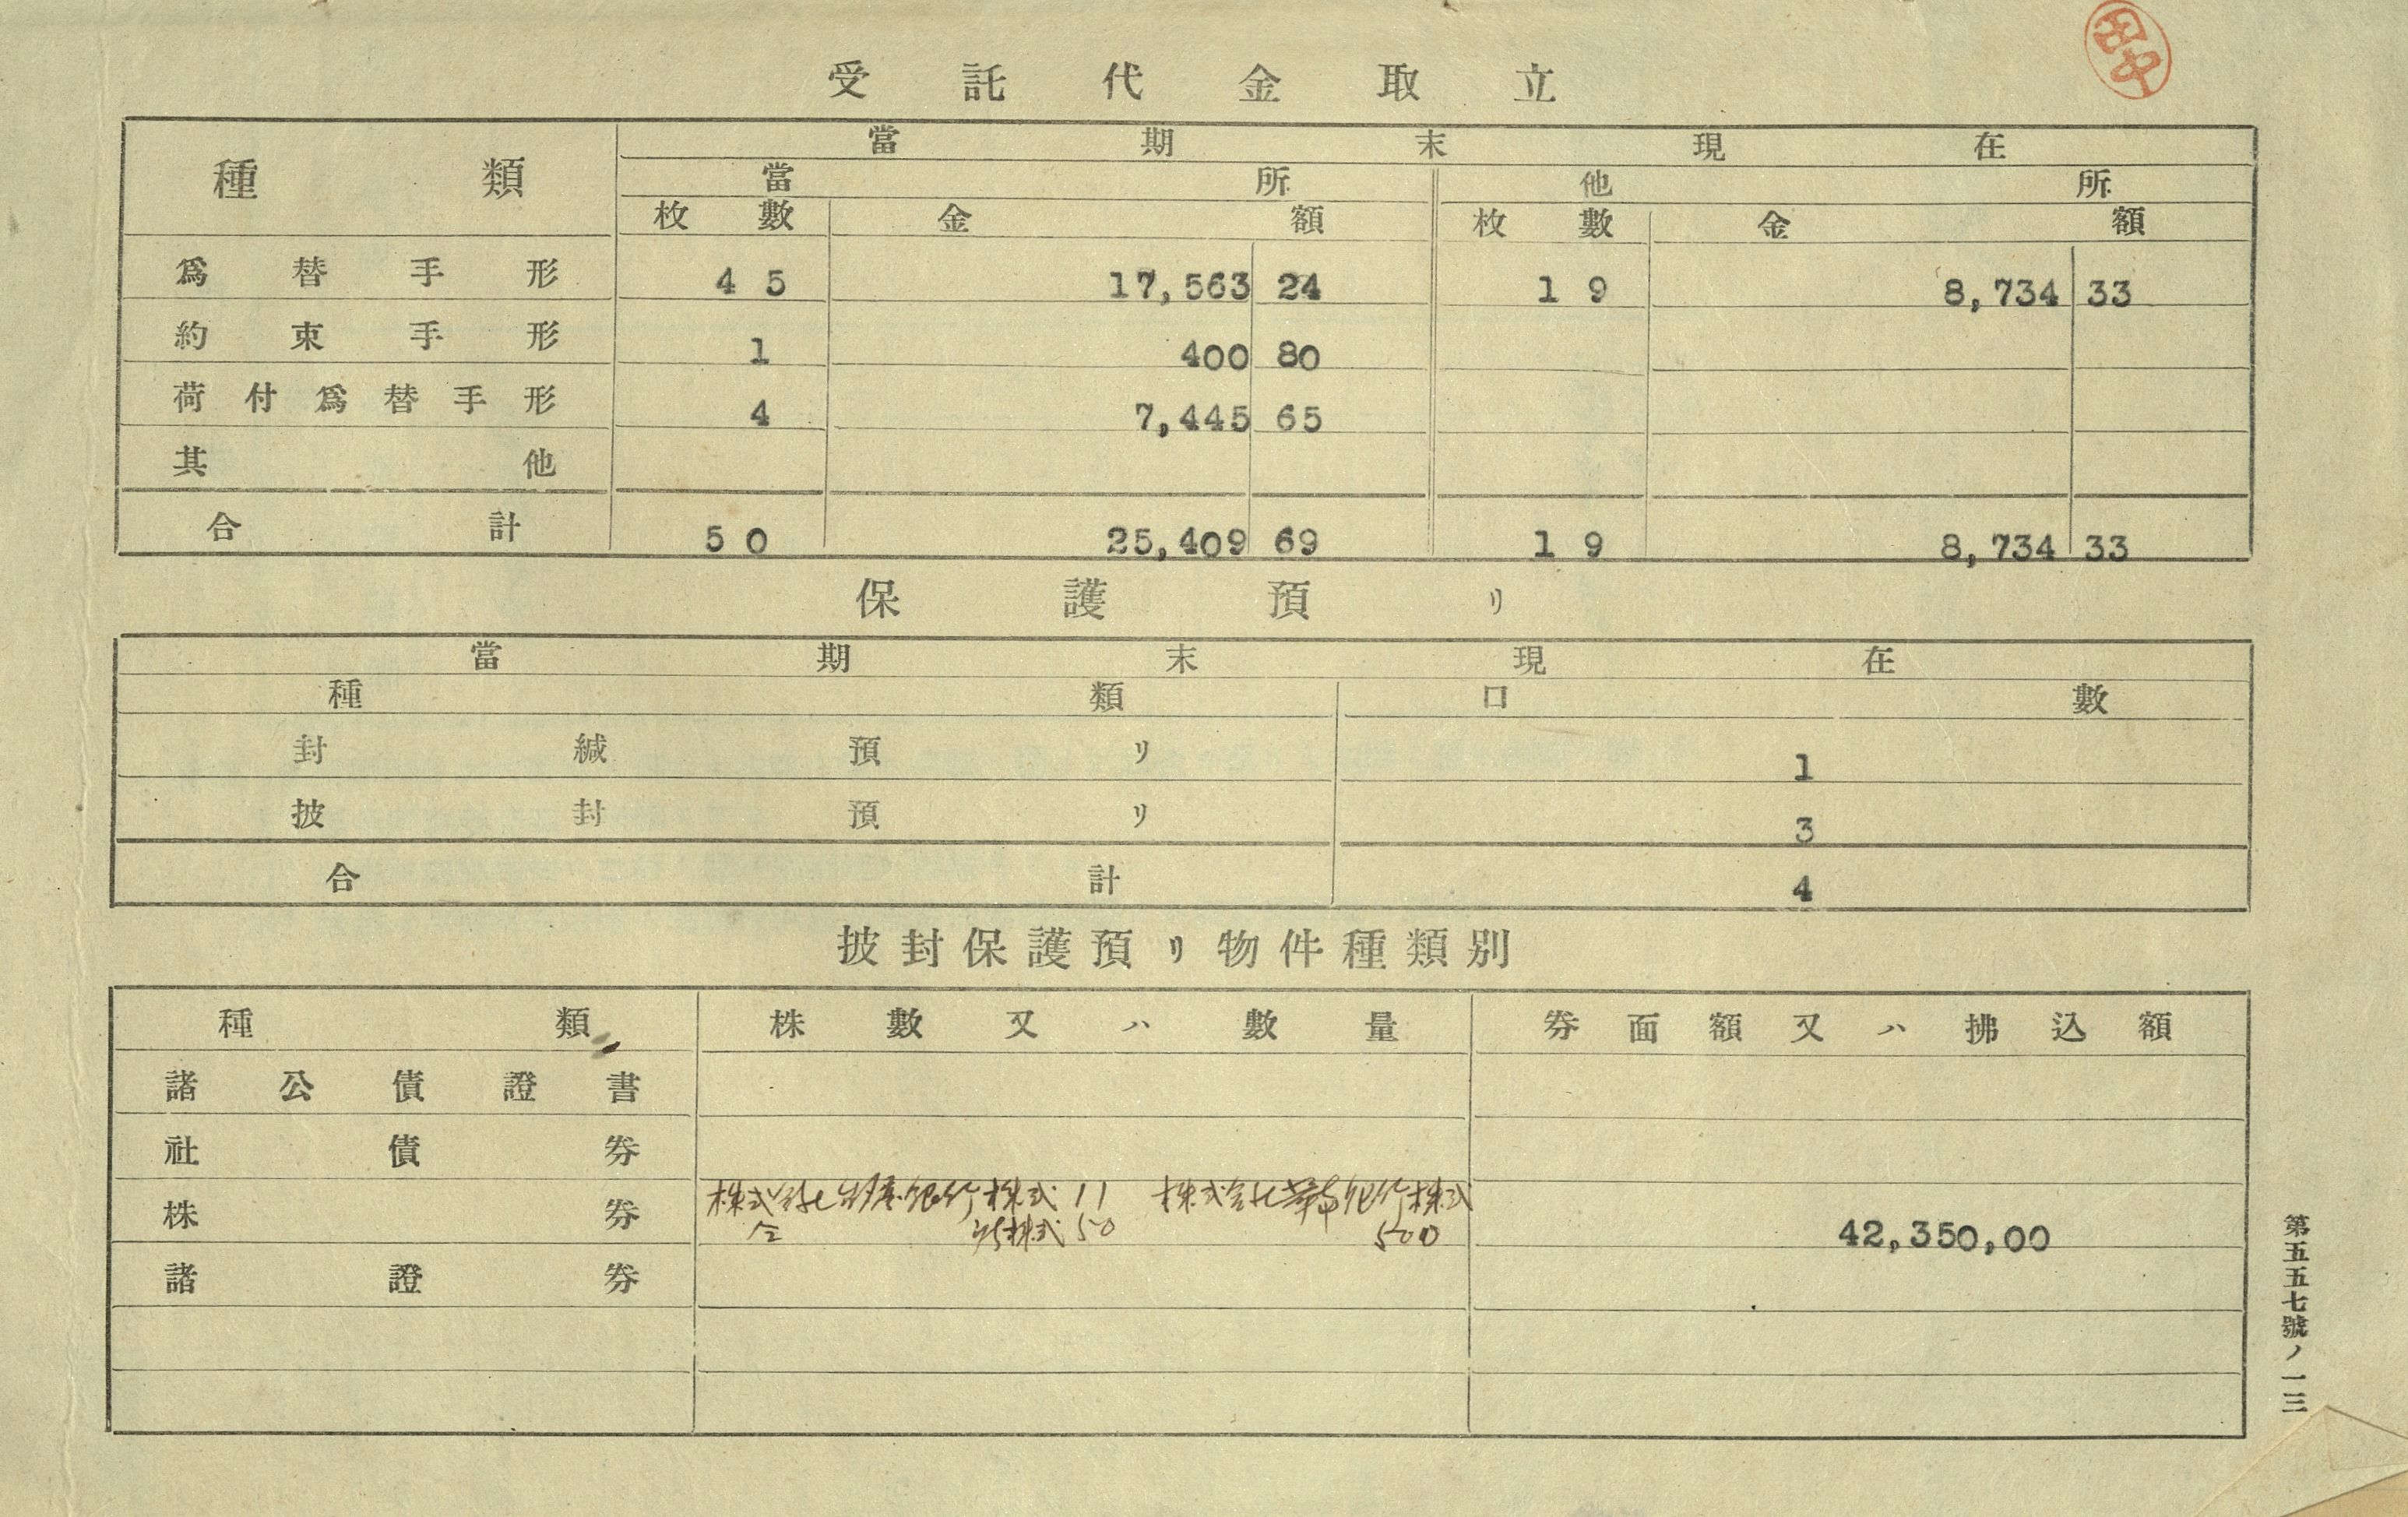 田中
受託代金取立
種類 當期末現在
當所 他所
枚數 金額 枚數 金額
爲替手形 45 17,563 24 19 8,734 33
約束手形 1 400 80
荷付爲替手形 4 7,445 65
其他
合計 50 25,409 69 19 8,734 33
保護預リ
當期末現在
種類 口數
封緘預リ 1
披封預リ 3
合計 4
披封保護預リ物件種類別
種類 株數又ハ數量 券面額又ハ拂込額
諸公債證書
社債券
株券 株式会社 銀行株式 11 株式会社華南銀行株式
仝 株式 50 500 42,350,00
諸證券
第五五七號ノ一三